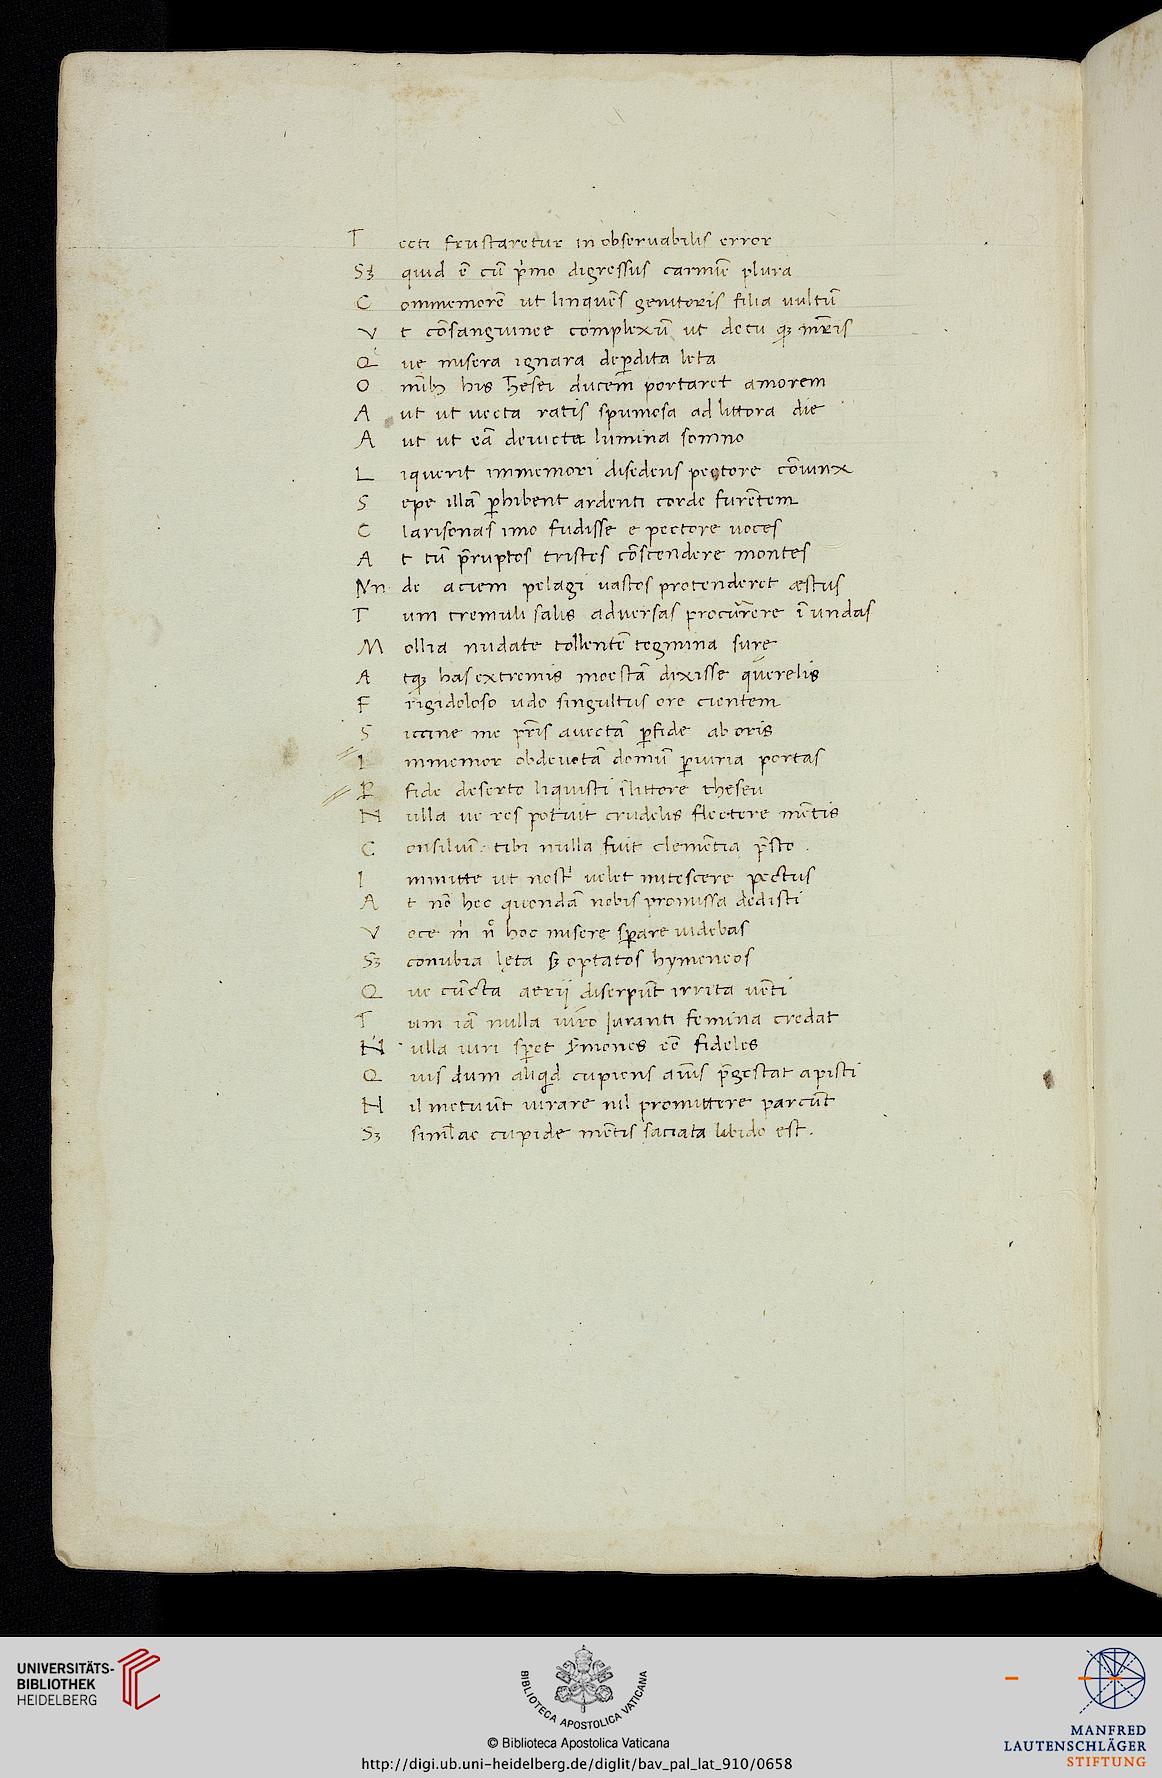 T ecti frustaretur in obseruabilis error
Sꝫ quid ē cū pͥmo digressus carmīe plura
C ommemorē ut linquēs genitoris filia uultū
V t cōsanguinee cōmplexū ut decu qꝫ mr̄is
Q ue misera ignara deꝑdita leta
O mībꝫ his Thesei ducem̄ portaret amorem
A ut ut uecta ratis spumosa ad littora die
A ut ut eā deuicta lumina somno
L iquerit immemori disedens pectore cōiunx
S epe illā ꝑhibent ardenti corde furētem
C larisonas imo fudisse e pectore uoces
A t tū p̄ruptos tristes cōscendere montes
Nn de aciem pelagi uastos protenderet æstus
T um tremuli salis aduersas procur̄rere ī undas
M ollia nudate tollentē tegmina surę
A tqꝫ has extremis moestā dixisse querelis
F rigidoloso udo singultus ore cientem
S iccine me pr̄is auectā ꝑfide ab oris
I mmemor obdeuotā domū ꝑiuria portas
P fide deserto liquisti ī littore theseu
N ulla ue res potuit crudelis flectere mētis
C onsiliū: tibi nulla fuit clemētia p̄sto .
I mmitte ut nostͥ uelet mitescere pectus
A t nō hec quondā nobis promissa dedisti
V oce mͥ nͦ hoc miserę sꝑare uidebas
Sꝫ conubia lęta sꝫ optatos hymeneos
Q ue cūcta aerij diserpūt irrita uēti
T um iā nulla uiro iuranti femina credat
N ulla uiri sꝑet s̄mones eē fideles
Q uis dum aliqͥd cupiens aīus p̄gestat apisti
N il metuūt iurare nil promittere parcūt
Sꝫ siml̄ac cupide mētis saciata libido est.
UNIVERSITÄTS-
BIBLIOTHEK
HEIDELBERG
BIBLIOTECA APOSTOLICA VATICANA
© Biblioteca Apostolica Vaticana
http://digi.ub.uni-heidelberg.de/diglit/bav_pal_lat_910/0658
MANFRED
LAUTENSCHLÄGER
STIFTUNG